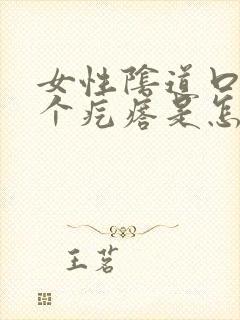 女性陰道口
个疙瘩是怎
王茗